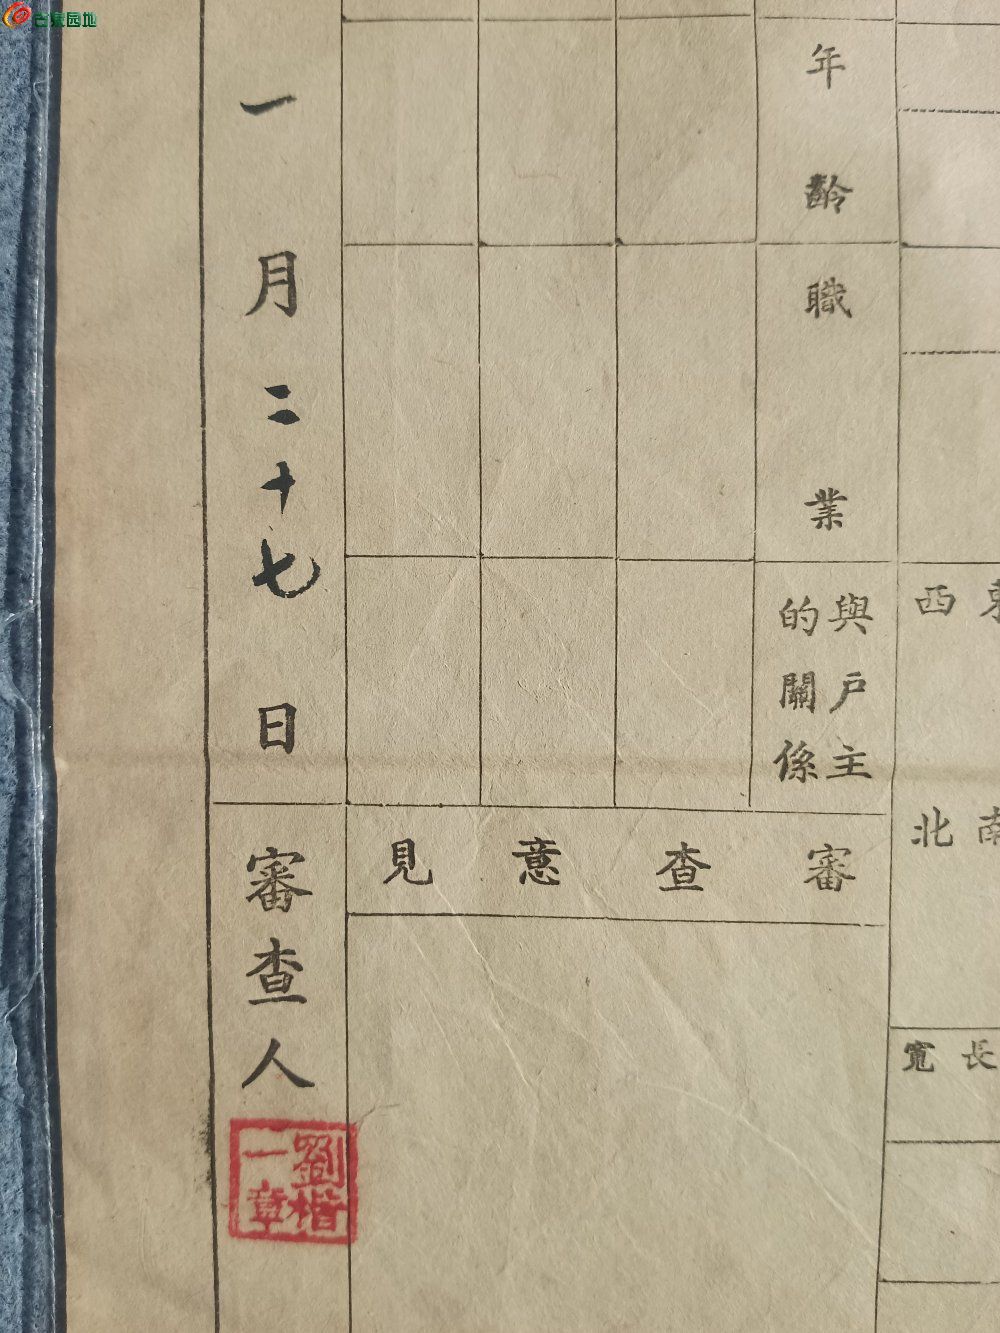 古泉园地
西
北
寬 長
年齡
職業
與戶主
的關係
審查意見
一月二十七日
審查人
劉楷
一章